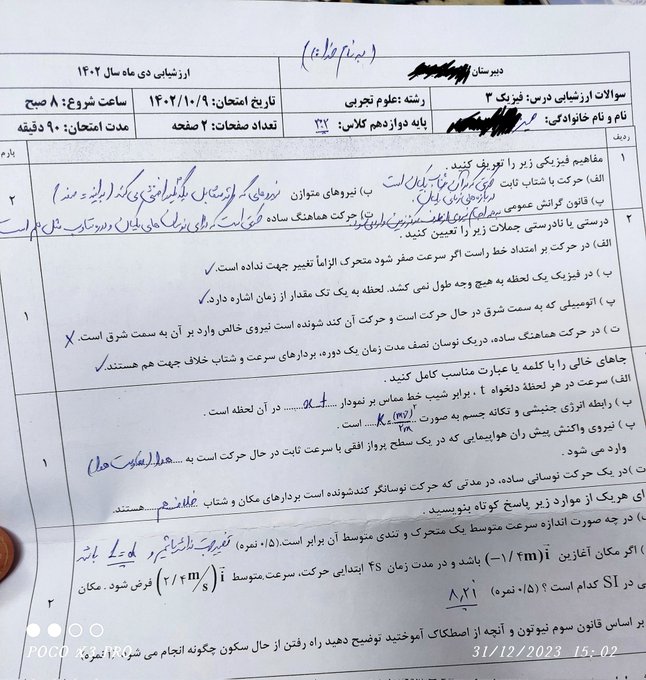 (به نام خدا)
دبیرستان
ارزشیابی دی ماه سال ۱۴۰۲
سوالات ارزشیابی درس: فیزیک ۳
رشته :علوم تجربی
تاریخ امتحان: ۱۴۰۲/۱۰/۹
ساعت شروع: ۸ صبح
نام و نام خانوادگی:
پایه دوازدهم کلاس: ۲۰۲
تعداد صفحات: ۲ صفحه
مدت امتحان: ۹۰ دقیقه
ردیف
بارم
۱
مفاهیم فیزیکی زیر را تعریف کنید .
الف) حرکت با شتاب ثابت
ب) نیروهای متوازن
پ) قانون گرانش عمومی
ت) حرکت هماهنگ ساده
۲
۲
درستی یا نادرستی جملات زیر را تعیین کنید .
الف) در حرکت بر امتداد خط راست اگر سرعت صفر شود متحرک الزاماً تغییر جهت نداده است. ✓
ب ) در فیزیک یک لحظه به هیچ وجه طول نمی کشد. لحظه به یک تک مقدار از زمان اشاره دارد. ✓
پ ) اتومبیلی که به سمت شرق در حال حرکت است و حرکت آن کند شونده است نیروی خالص وارد بر آن به سمت شرق است. ✗
ت ) در حرکت هماهنگ ساده، دریک نوسان نصف مدت زمان یک دوره، بردارهای سرعت و شتاب خلاف جهت هم هستند. ✓
۱
جاهای خالی را با کلمه یا عبارت مناسب کامل کنید .
الف) سرعت در هر لحظهٔ دلخواه t ، برابر شیب خط مماس بر نمودار x-t در آن لحظه است .
ب ) رابطه انرژی جنبشی و تکانه جسم به صورت K = (mv)²/2m است .
پ ) نیروی واکنش پیش ران هواپیمایی که در یک سطح پرواز افقی با سرعت ثابت در حال حرکت است به هوا (مقاومت هوا)
وارد می شود .
ت )در یک حرکت نوسانی ساده، در مدتی که حرکت نوسانگر کندشونده است بردارهای مکان و شتاب خلاف هم هستند.
۱
ای هریک از موارد زیر پاسخ کوتاه بنویسید .
) در چه صورت اندازه سرعت متوسط یک متحرک و تندی متوسط آن برابر است.(۰/۵ نمره) تغییر جهت نداشته باشیم و l=d باشد
) اگر مکان آغازین (−۱/۴m)i باشد و در مدت زمان ۴s ابتدایی حرکت، سرعت متوسط (۲/۴ m/s)i فرض شود . مکان
ی در SI کدام است ؟ (۰/۵ نمره) ۸,۲i
۲
بر اساس قانون سوم نیوتون و آنچه از اصطکاک آموختید توضیح دهید راه رفتن از حال سکون چگونه انجام می شود (۱ نمره)
POCO X3 PRO
31/12/2023 15:02